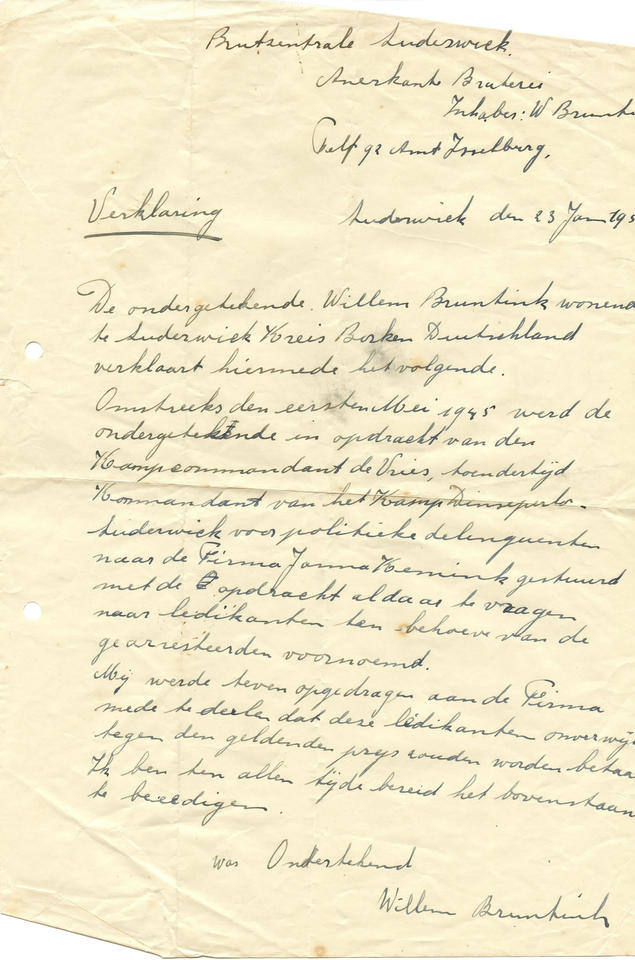 Brutzentrale Suderwick.
Anerkante Bruterei
Inhaber: W Brunti
Telf 92 Amt Isselburg,
Verklaring
Suderwick den 23 Jan 195
De ondergetekende. Willem Bruntink wonend
te Suderwick Kreis Borken Deutschland
verklaart hiermede het volgende.
Omstreeks den eersten Mei 1945 werd de
ondergetekende in opdracht van den
Kampcommandant de Vries, toendertijd
Kommandant van het Kamp Dinxperlo-
Suderwick voor politieke delenquenten
naar de Firma Janna Kemink gestuurd
met de opdracht aldaar te vragen
naar ledikanten ten behoeve van de
gearresteerden voornoemd.
Mij werde teven opgedragen aan de Firma
mede te deelen dat deze ledikanten onverwij
tegen den geldenden prijs zouden worden betaa
Ik ben ten allen tijde bereid het bovenstaan
te beeedigen.
was Ondertekend
Willem Bruntink